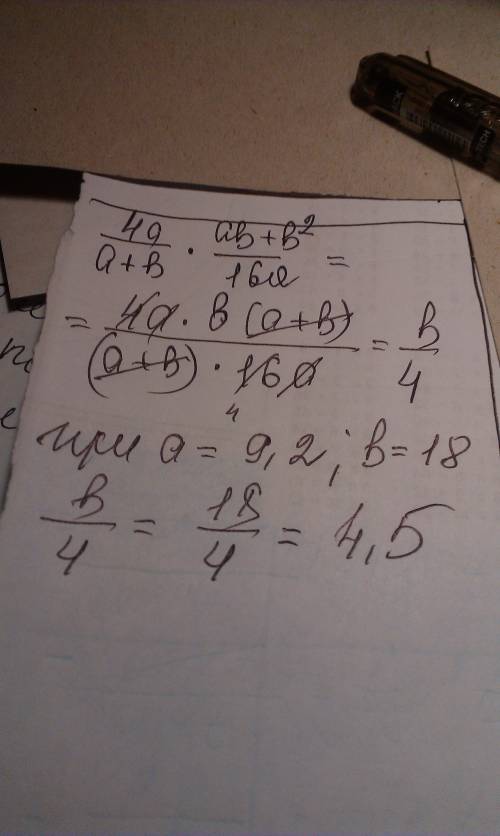 4a/(a+b) · (ab+b²)/16a =
= 4a · b (a+b)/((a+b) · 16a) = b/4
4
при a = 9,2; b=18
b/4 = 18/4 = 4,5